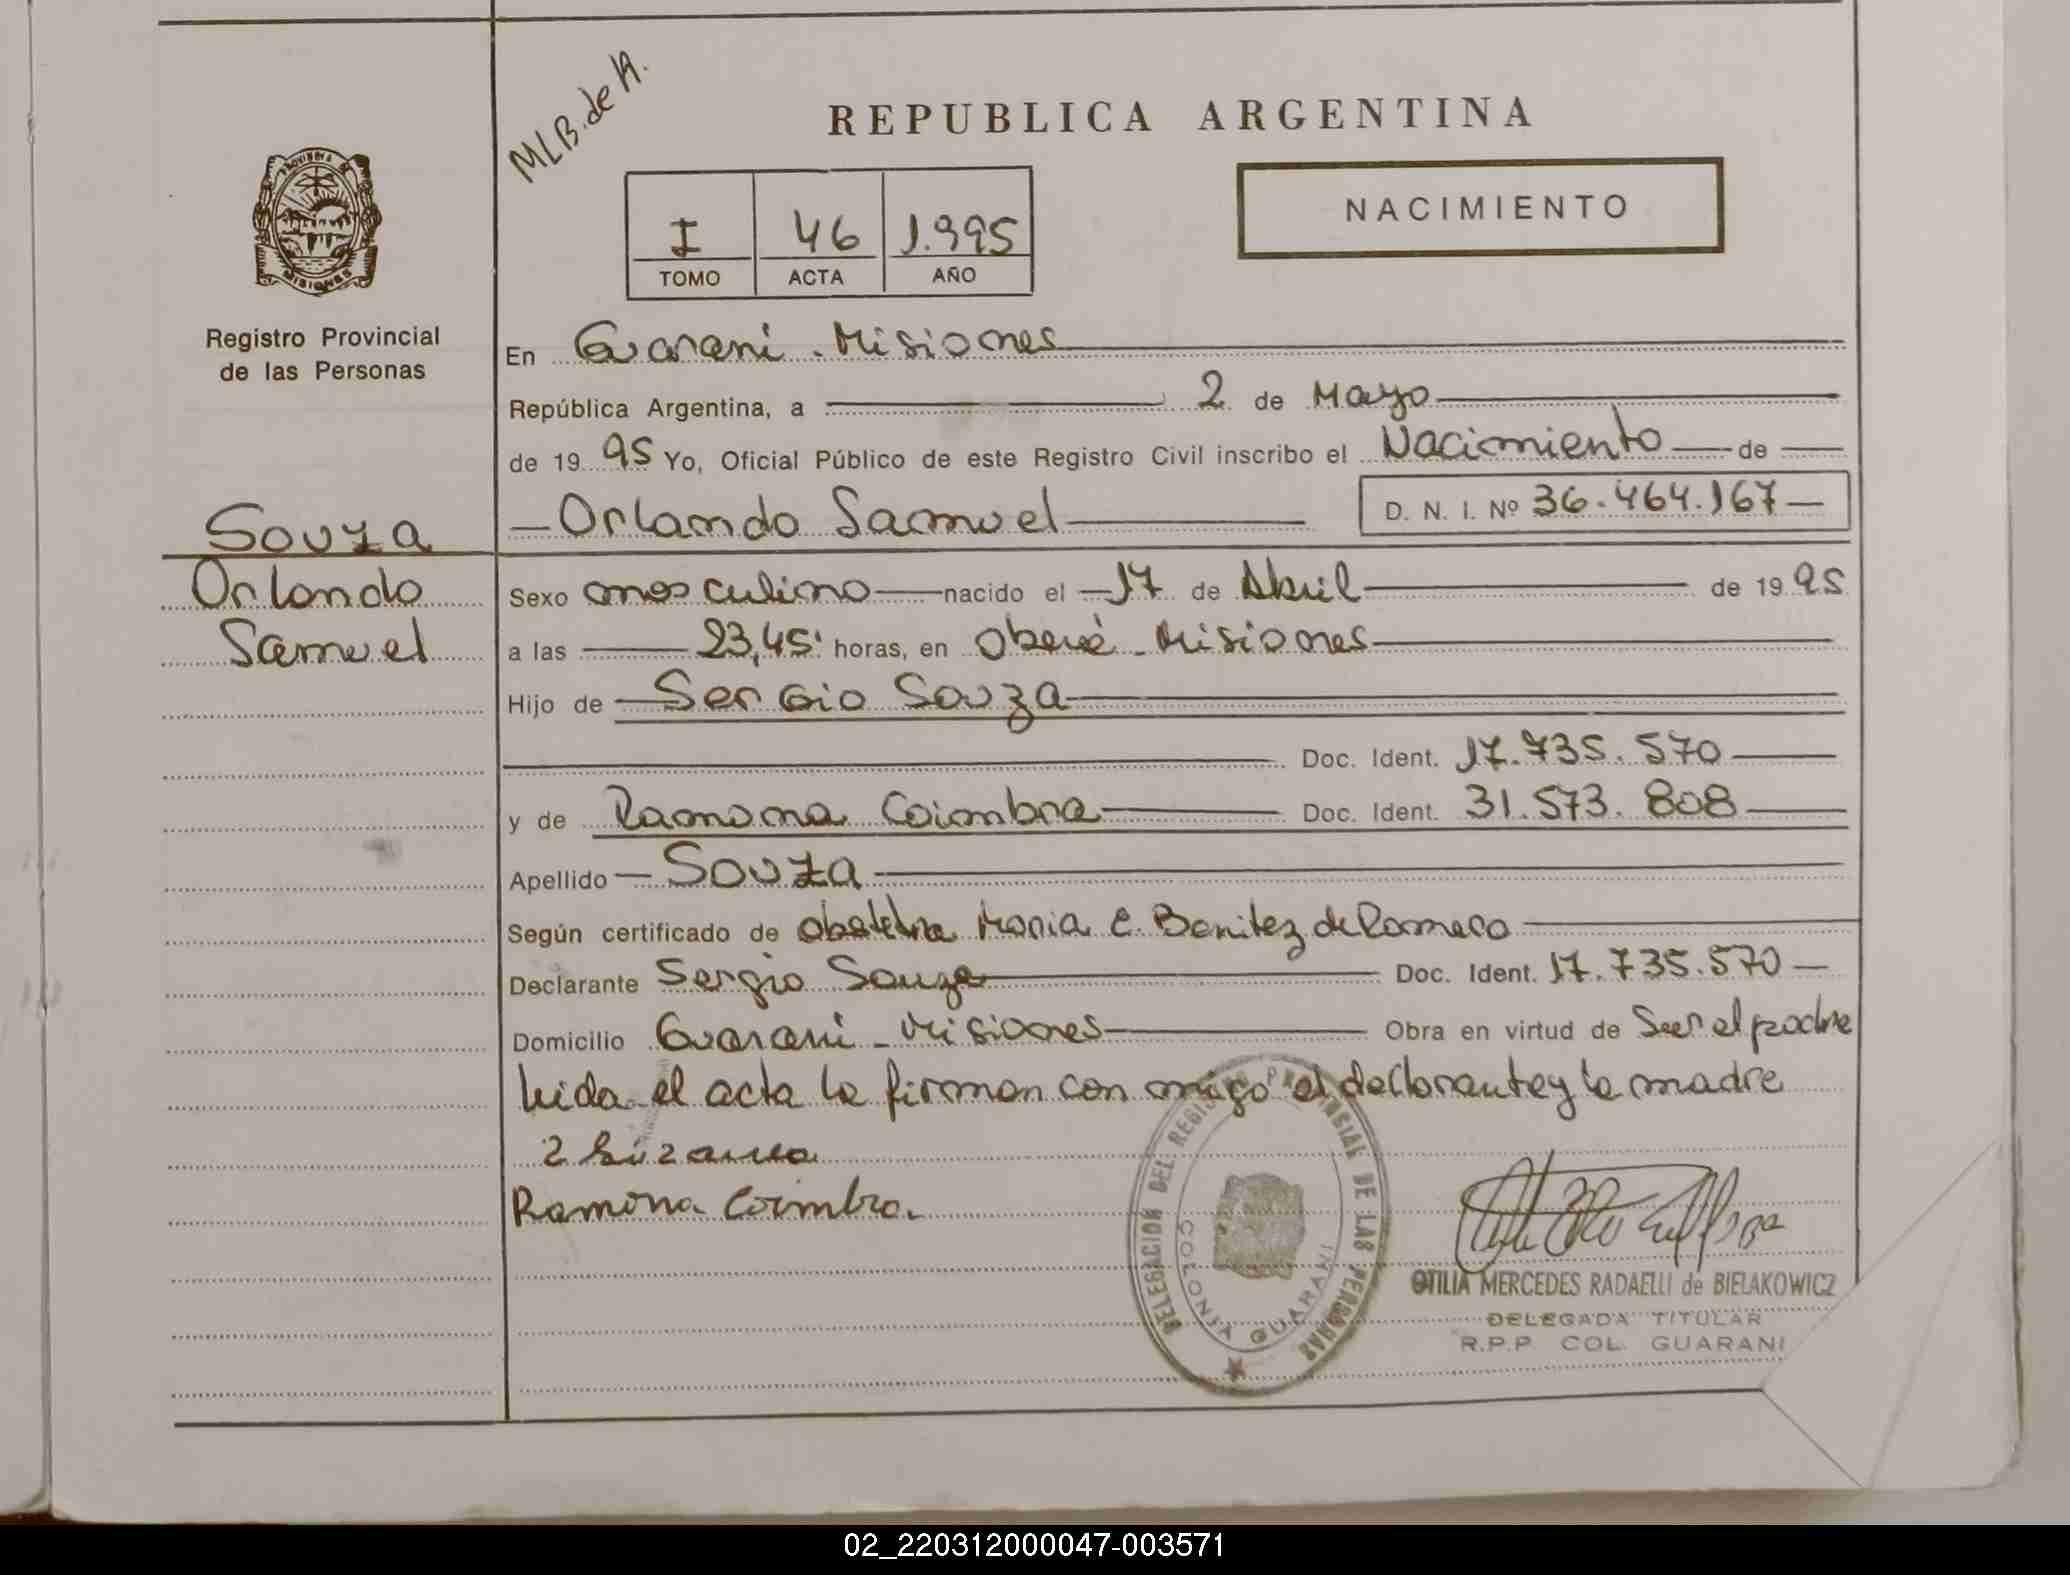 MLB. de A.
REPUBLICA ARGENTINA
NACIMIENTO
I 46 1.995
TOMO ACTA AÑO
PROVINCIA DE
MISIONES
Registro Provincial
de las Personas
Souza
Orlando
Samuel
En Guarani - Misiones
República Argentina, a 2 de Mayo
de 19 95 Yo, Oficial Público de este Registro Civil inscribo el Nacimiento de
Orlando Samuel D. N. I. Nº 36.464.167
Sexo masculino nacido el 17 de Abril de 19 95
a las 23,45' horas, en Oberá - Misiones
Hijo de Sergio Souza
Doc. Ident. 17.735.570
y de Ramona Coimbra Doc. Ident. 31.573.808
Apellido Souza
Según certificado de obstetra Maria E. Benitez de Romero
Declarante Sergio Souza Doc. Ident. 17.735.570
Domicilio Guarani - Misiones Obra en virtud de Ser el padre
leida el acta la firman con migo el declarante y la madre
Ramona Coimbra.
DELEGACION DEL REGISTRO PROVINCIAL DE LAS PERSONAS
COLONIA GUARANI
OTILIA MERCEDES RADAELLI de BIELAKOWICZ
DELEGADA TITULAR
R.P.P. COL. GUARANI
02_220312000047-003571